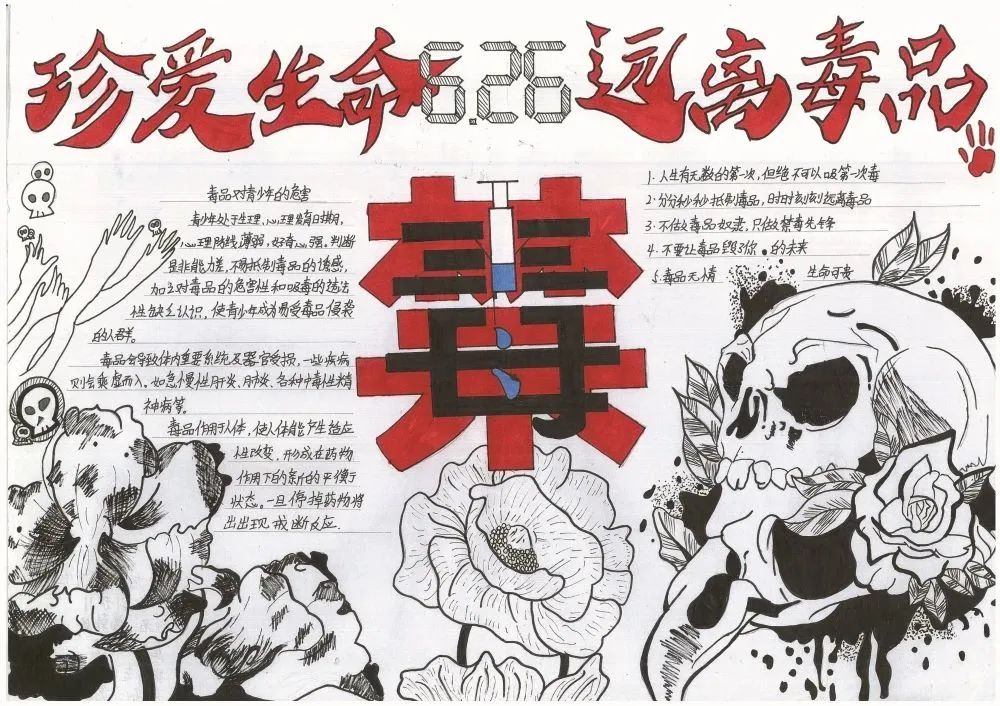 珍爱生命 6.26 远离毒品
毒品对青少年的危害
青少年处于生理、心理发育日期,
心理防线薄弱,好奇心强。判断
是非能力差,不易抵制毒品的诱惑,
加之对毒品的危害性和吸毒的违法
性缺乏认识,使青少年成为易受毒品侵袭
的人群。
毒品会导致体内重要系统及器官受损,一些疾病
则会乘虚而入。如急慢性肝炎、肺炎、各种中毒性精
神病等。
毒品作用于人体,使人体能产生适应
性改变,形成在药物
作用下的新的平衡
状态。一旦停掉药物将
出出现戒断反应.
禁毒
1. 人生有无数的第一次,但绝不可以吸第一次毒
2. 分分秒秒抵制毒品,时时刻刻远离毒品
3. 不做毒品奴隶,只做禁毒先锋
4. 不要让毒品毁了你的未来
5. 毒品无情 生命可贵